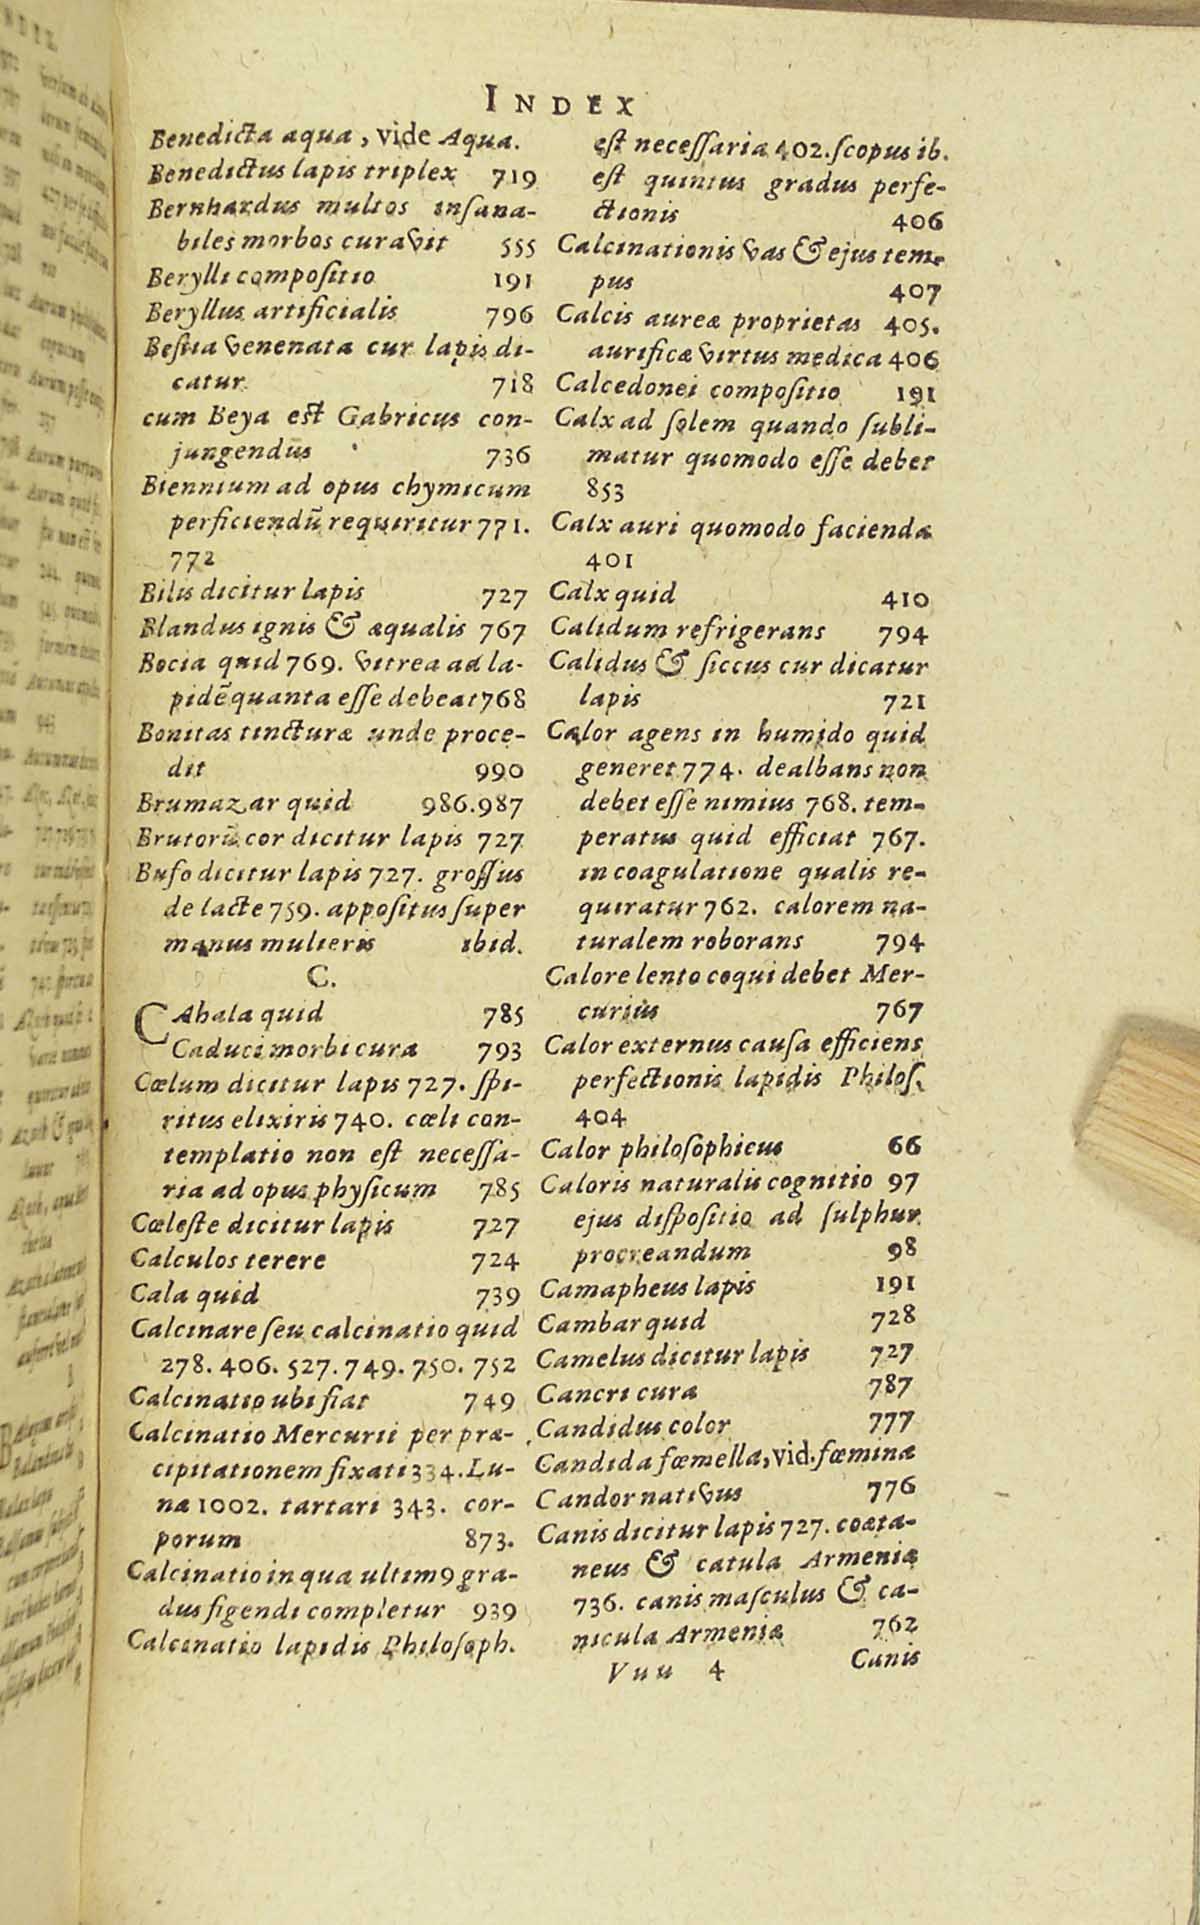 INDEX
Benedicta aqua, vide Aqua.
Benedictus lapis triplex 719
Bernhardus multos insana-
biles morbos curavit 555
Berylli compositio 191
Beryllus artificialis 796
Bestia venenata cur lapis di-
catur 718
cum Beya est Gabricus con-
jungendus 736
Biennium ad opus chymicum
perficiendū requiritur 771.
772
Bilis dicitur lapis 727
Blandus ignis & æqualis 767
Bocia quid 769. vitrea ad la-
pidē quanta esse debeat 768
Bonitas tincturæ unde proce-
dit 990
Brumazar quid 986.987
Brutorū cor dicitur lapis 727
Bufo dicitur lapis 727. grossus
de lacte 759. appositus super
manus mulieris ibid.
C.
CAbala quid 785
Caduci morbi cura 793
Cœlum dicitur lapis 727. spi-
ritus elixiris 740. cœli con-
templatio non est necessa-
ria ad opus physicum 785
Cœleste dicitur lapis 727
Calculos terere 724
Cala quid 739
Calcinare seu calcinatio quid
278. 406. 527. 749. 750. 752
Calcinatio ubi fiat 749
Calcinatio Mercurii per præ-
cipitationem fixati 334. Lu-
næ 1002. tartari 343. cor-
porum 873.
Calcinatio in qua ultimꝰ gra-
dus figendi completur 939
Calcinatio lapidis Philosoph.
est necessaria 402. scopus ib.
est quintus gradus perfe-
ctionis 406
Calcinationis vas & ejus tem-
pus 407
Calcis aureæ proprietas 405.
aurificæ virtus medica 406
Calcedonei compositio 191
Calx ad solem quando subli-
matur quomodo esse debet
853
Calx auri quomodo facienda
401
Calx quid 410
Calidum refrigerans 794
Calidus & siccus cur dicatur
lapis 721
Calor agens in humido quid
generet 774. dealbans non
debet esse nimius 768. tem-
peratus quid efficiat 767.
in coagulatione qualis re-
quiratur 762. calorem na-
turalem roborans 794
Calore lento coqui debet Mer-
curius 767
Calor externus causa efficiens
perfectionis lapidis Philos.
404
Calor philosophicus 66
Caloris naturalis cognitio 97
ejus dispositio ad sulphur
procreandum 98
Camapheus lapis 191
Cambar quid 728
Camelus dicitur lapis 727
Cancri cura 787
Candidus color 777
Candida fœmella, vid. fœmina
Candor nativus 776
Canis dicitur lapis 727. coæta-
neus & catula Armeniæ
736. canis masculus & ca-
nicula Armeniæ 762
Vuu 4 Canis